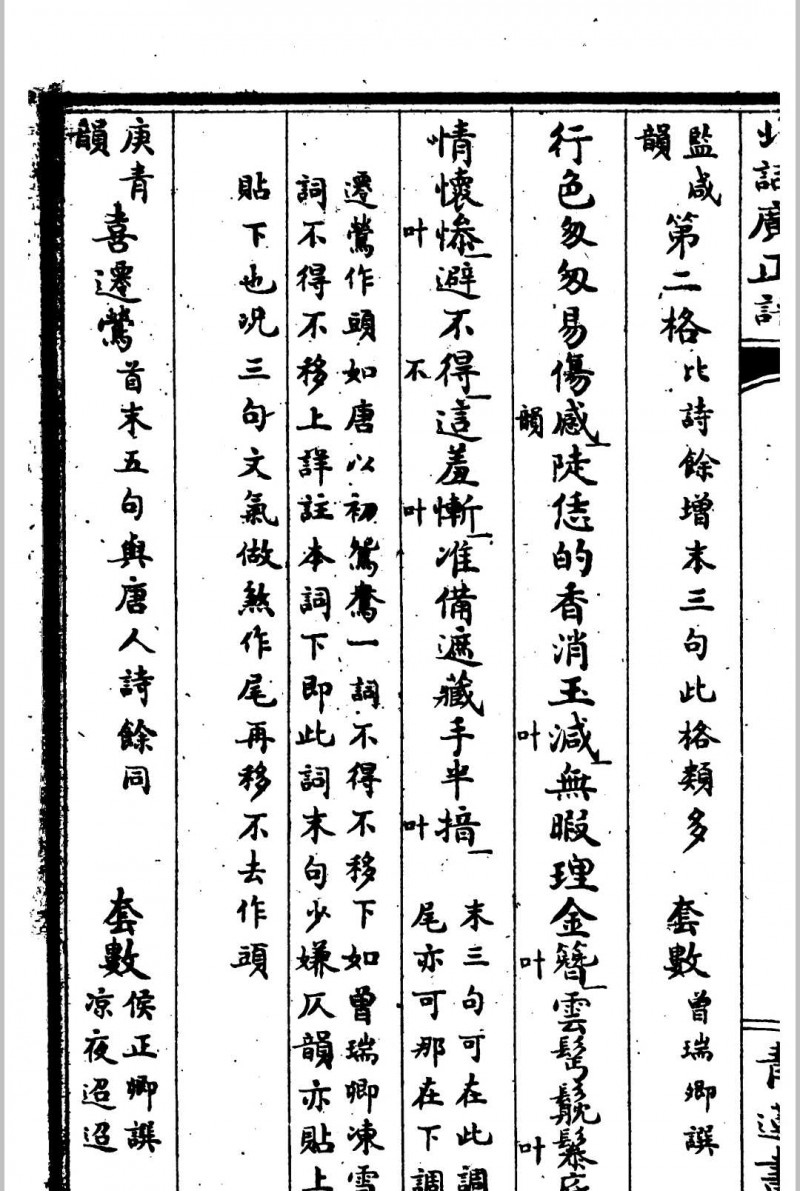 北詞廣正譜
青蓮書
監咸韻 第二格 比詩餘增末三句此格類多 套數 曾瑞卿譔
行色匆匆易傷感韻陡恁的香消玉減叶無暇理金簪叶雲髻鬅鬆叶
情懷慘叶避不得不這羞慚叶准備遮藏手半揞叶末三句可在此調尾亦可那在下調
遷鶯作頭如唐以初鴛鴦一詞不得不移下如曾瑞卿凍雪
詞不得不移上詳註本詞下即此詞末句少嫌仄韻亦貼上
貼下也況三句文氣做煞作尾再移不去作頭
庚青韻 喜遷鶯 首末五句與唐人詩餘同 套數 侯正卿譔涼夜迢迢